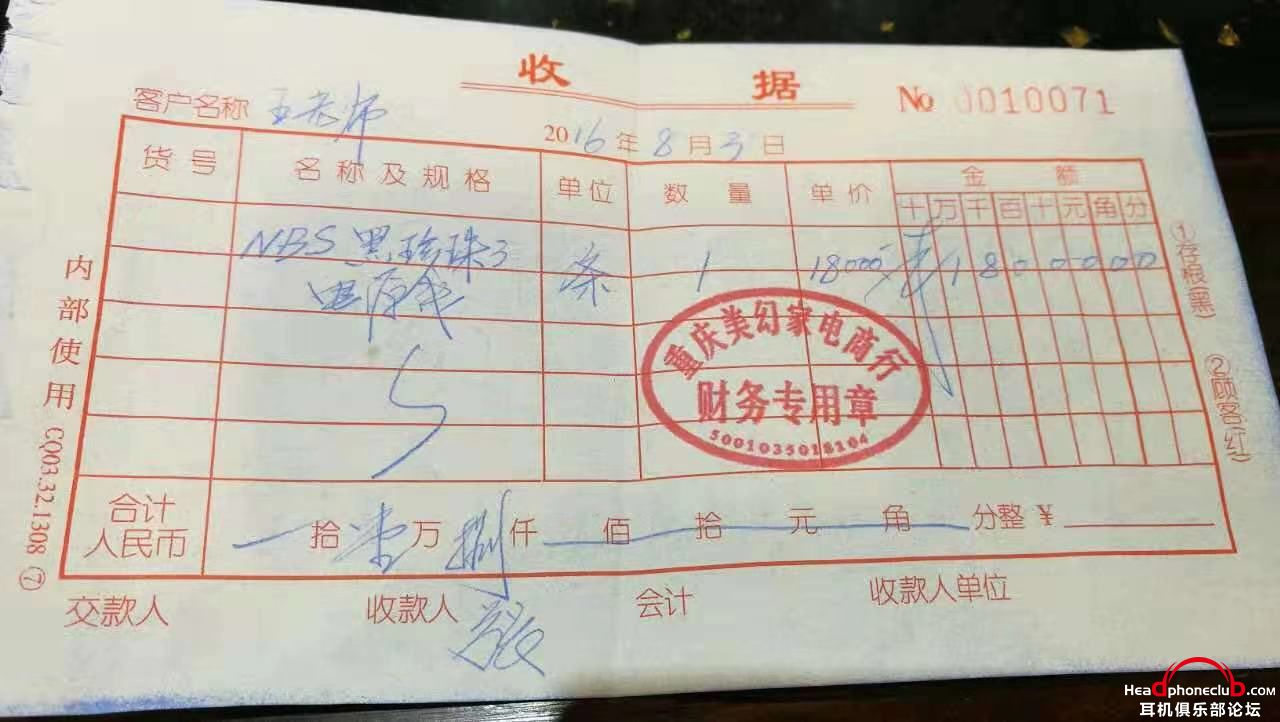 收 据
No 0010071
客户名称 王老师
2016年8月3日
货号 名称及规格 单位 数量 单价 金额
十 万 千 百 十 元 角 分
NBS 黑珍珠3 条 1 18000 1 8 0 0 0 0 0
电源线
重庆美幻家电商行
财务专用章
5001035018104
内部使用 CQ03.32.1308 ⑦
①存根(黑) ②顾客(红)
合计
人民币
一拾壹万捌仟 佰 拾 元 角 分整 ¥
交款人 收款人 会计 收款人单位
Headphoneclub.com
耳机俱乐部论坛